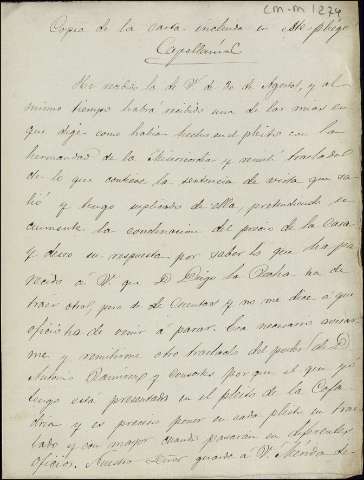 CM-M 1274
Copia de la carta incluida en este pliego
Capellanias
He recibido la de V. de 20 de Agosto, y al
mismo tiempo habrá recibido una de las mias en
que dije como habia hecho en el pleito con la
hermandad de la Misericordia y remití traslado
de lo que contiene la sentencia de vista que sa-
lió y tengo suplicado de ella, pretendiendo se
aumente la condenacion del precio de la Casa
y deseo su respuesta por saber lo que ha pa-
recido á V. que D. Diego la Rocha ha de
traer otro, pero de Cuentas y no me dice á que
oficio ha de venir á parar. Era necesario avisar-
me y remitirme otro traslado del poder de D.
Antonio Ramirez y consortes por que el que yo
tengo está presentado en el pleito de la Cofa
dria y es preciso poner en cada pleito un tras
lado y con mayor cuando pasaran en diferentes
oficios. Nuestro Señor guarde á V. Mérida de-